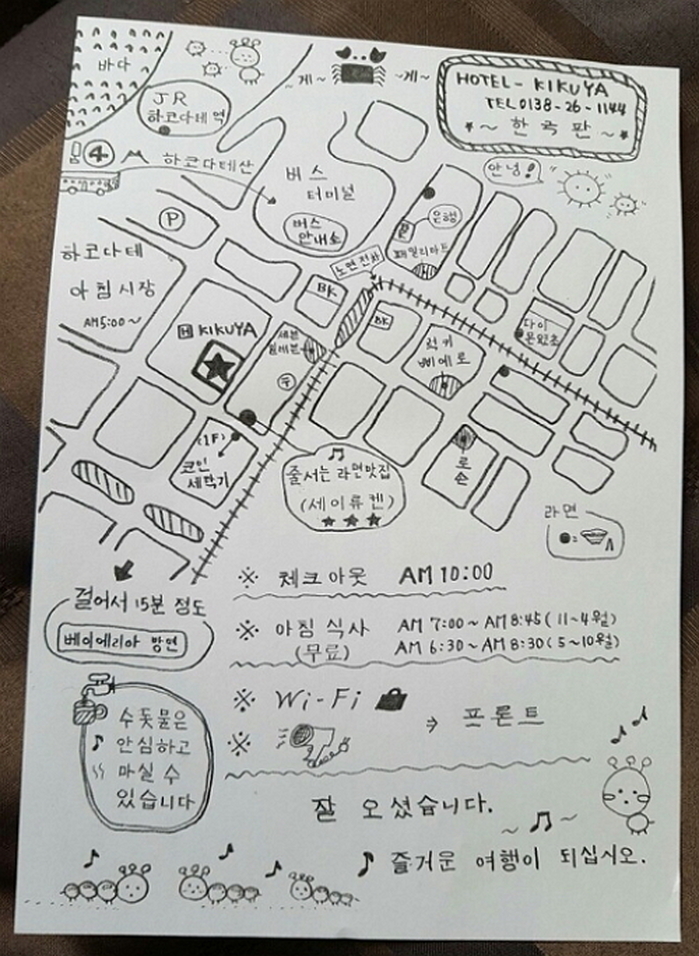 HOTEL-KIKUYA
TEL 0138-26-1144
~한국판~
바다
~게~
~게~
JR
하코다테역
④ 하코다테산
안녕!
버스
터미널
버스
안내소
P
은행
패밀리마트
노면전차
하코다테
아침시장
AM5:00~
BK
BK
H KIKUYA
세븐
일레븐
〒
럭키
삐에로
다이
몬요쵸
로손
(1F)
코인
세탁기
줄서는 라면맛집
(세이류켄)
★★★
라면
●=
걸어서 15분 정도
베이에리아 방면
※ 체크아웃 AM 10:00
※ 아침 식사 AM 7:00~AM 8:45(11~4월)
(무료) AM 6:30~AM 8:30(5~10월)
※ Wi-Fi
※ ⇒ 프론트
수돗물은
안심하고
마실 수
있습니다
잘 오셨습니다.
즐거운 여행이 되십시오.